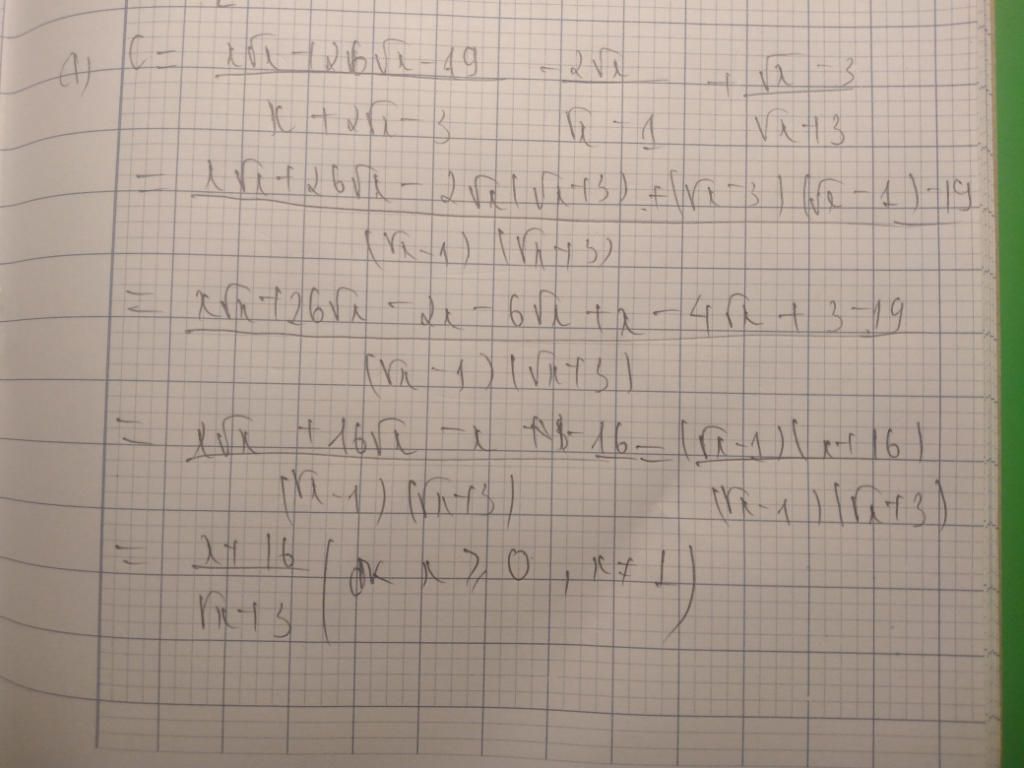 1) C = (x√x + 26√x - 19)/(x + 2√x - 3) - 2√x/(√x - 1) + (√x - 3)/(√x + 3)
= (x√x + 26√x - 2√x(√x + 3) + (√x - 3)(√x - 1) - 19)/((√x - 1)(√x + 3))
= (x√x + 26√x - 2x - 6√x + x - 4√x + 3 - 19)/((√x - 1)(√x + 3))
= (x√x + 16√x - x - 16)/((√x - 1)(√x + 3)) = ((√x - 1)(x + 16))/((√x - 1)(√x + 3))
= (x + 16)/(√x + 3) (đk x ≥ 0, x ≠ 1)